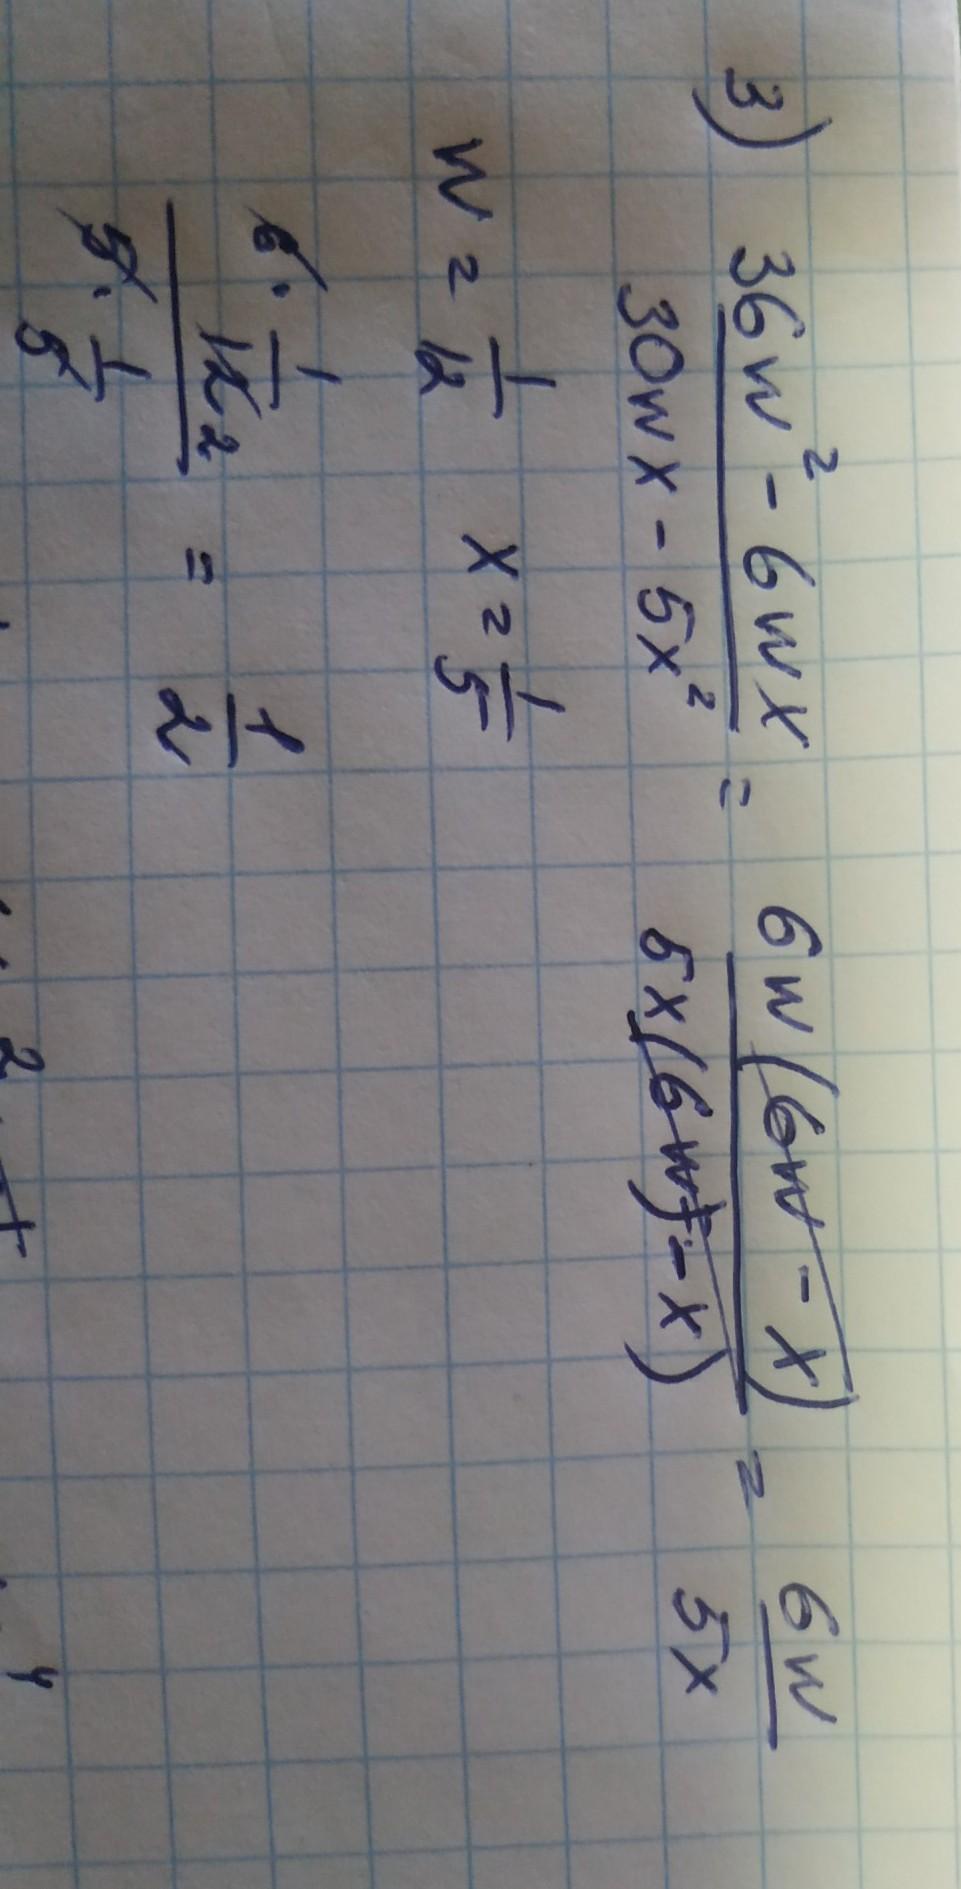 3) (36w² - 6wx)/(30wx - 5x²) = (6w(6w - x))/(5x(6w) - x) = 6w/5x
w = 1/12 x = 1/5
(6 · 1/12 2)/(5 · 1/5) = 1/2